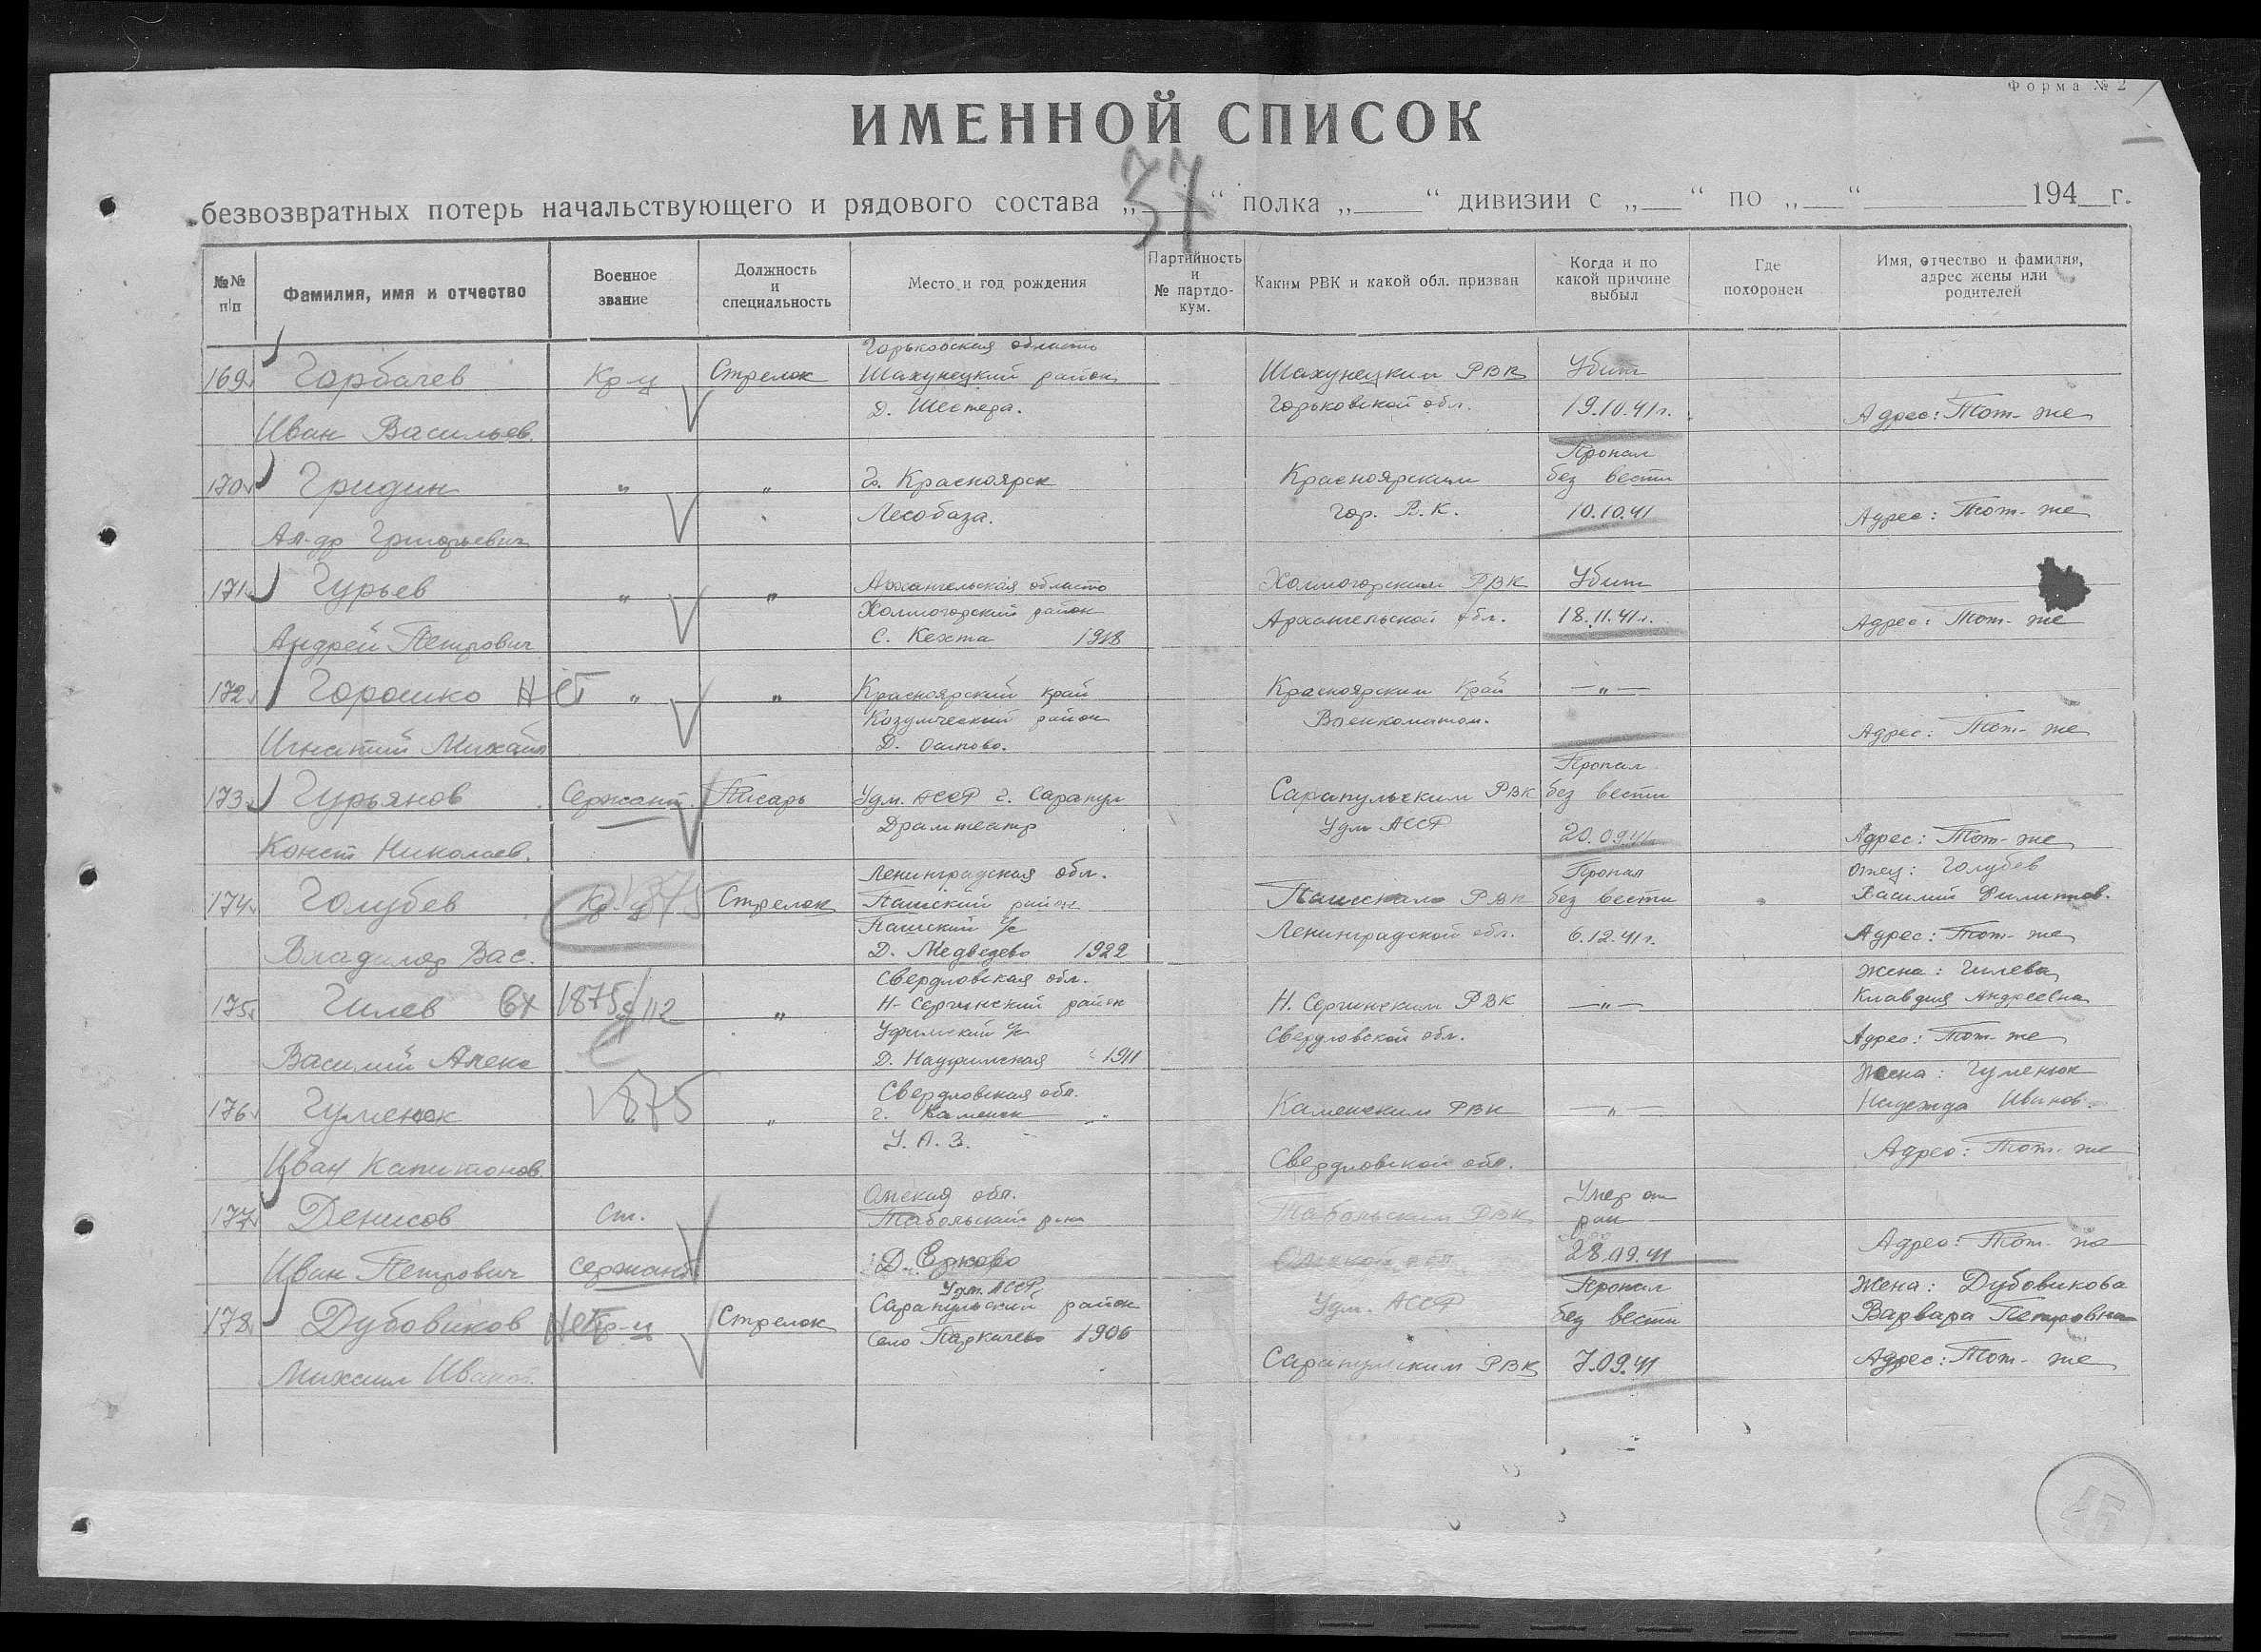 Форма № 2
ИМЕННОЙ СПИСОК
37
безвозвратных потерь начальствующего и рядового состава „ “ полка „ “ дивизии с „ “ по „ “ 194 г.
№№ п/п
Фамилия, имя и отчество
Военное звание
Должность и специальность
Место и год рождения
Партийность и № партдокум.
Каким РВК и какой обл. призван
Когда и по какой причине выбыл
Где похоронен
Имя, отчество и фамилия, адрес жены или родителей
Горьковская область
169 Горбачев Кр-ц Стрелок Шахунецкий район Шахунецким РВК Убит
Д. Шестера. Горьковской обл. 19.10.41г. Адрес: Тот-же
Иван Васильев.
Пропал
170 Гридин " " Г. Красноярск Красноярским без вести
Лесобаза. Гор. В.К. 10.10.41 Адрес: Тот-же
Ал-др Григорьевич
171 Гурьев " " Архангельская область Холмогорским РВК Убит
Холмогорский район Архангельской обл. 18.11.41г. Адрес: Тот-же
Андрей Петрович С. Кехта 1918
172 Горошко Нет " " Красноярский край Красноярским Край —"—
Козульческий район Военкоматом.
Игнатий Михайл Д. Адрес: Тот-же
Пропал
173 Гурьянов Сержант Писарь Удм. АССР г. Сарапул Сарапульским РВК без вести
Драмтеатр Удм АССР 20.09.41г. Адрес: Тот-же
Конст Николаев.
Ленинградская обл. Пропал отец: Голубев
174 Голубев Кр-ц 1875 Стрелок Пашский район Пашским РВК без вести Василий Филиппов.
Пашский с/с Ленинградской обл. 6.12.41г. Адрес: Тот-же
Владимир Вас. Д. Медведево 1922
Свердловская обл. Жена: Гилева
175 Гилев 1875 " Н-Сергинский район Н. Сергинским РВК —"— Клавдия Андреевна
Уфимский с/с Свердловской обл. Адрес: Тот-же
Василий Алекс Д. 1911
Свердловская обл. Жена: Гуменюк
176 Гуменюк 1875 " г. Каменск Каменским РВК —"— Надежда Иванов.
У.А.З. Адрес: Тот-же
Иван Капитонов. Свердловской обл.
Омская обл. Умер от
177 Денисов Ст. Табольский р-н Табольским РВК ран
Иван Петрович сержант Д. Ерково Омской обл 28.09.41 Адрес: Тот-же
Удм. АССР Пропал Жена: Дубовикова
178 Дубовиков Нет Кр-ц Стрелок Сарапульский район Удм. АССР без вести Варвара Петровна
Село 1906
Михаил Иванов. Сарапульским РВК 7.09.41 Адрес: Тот-же